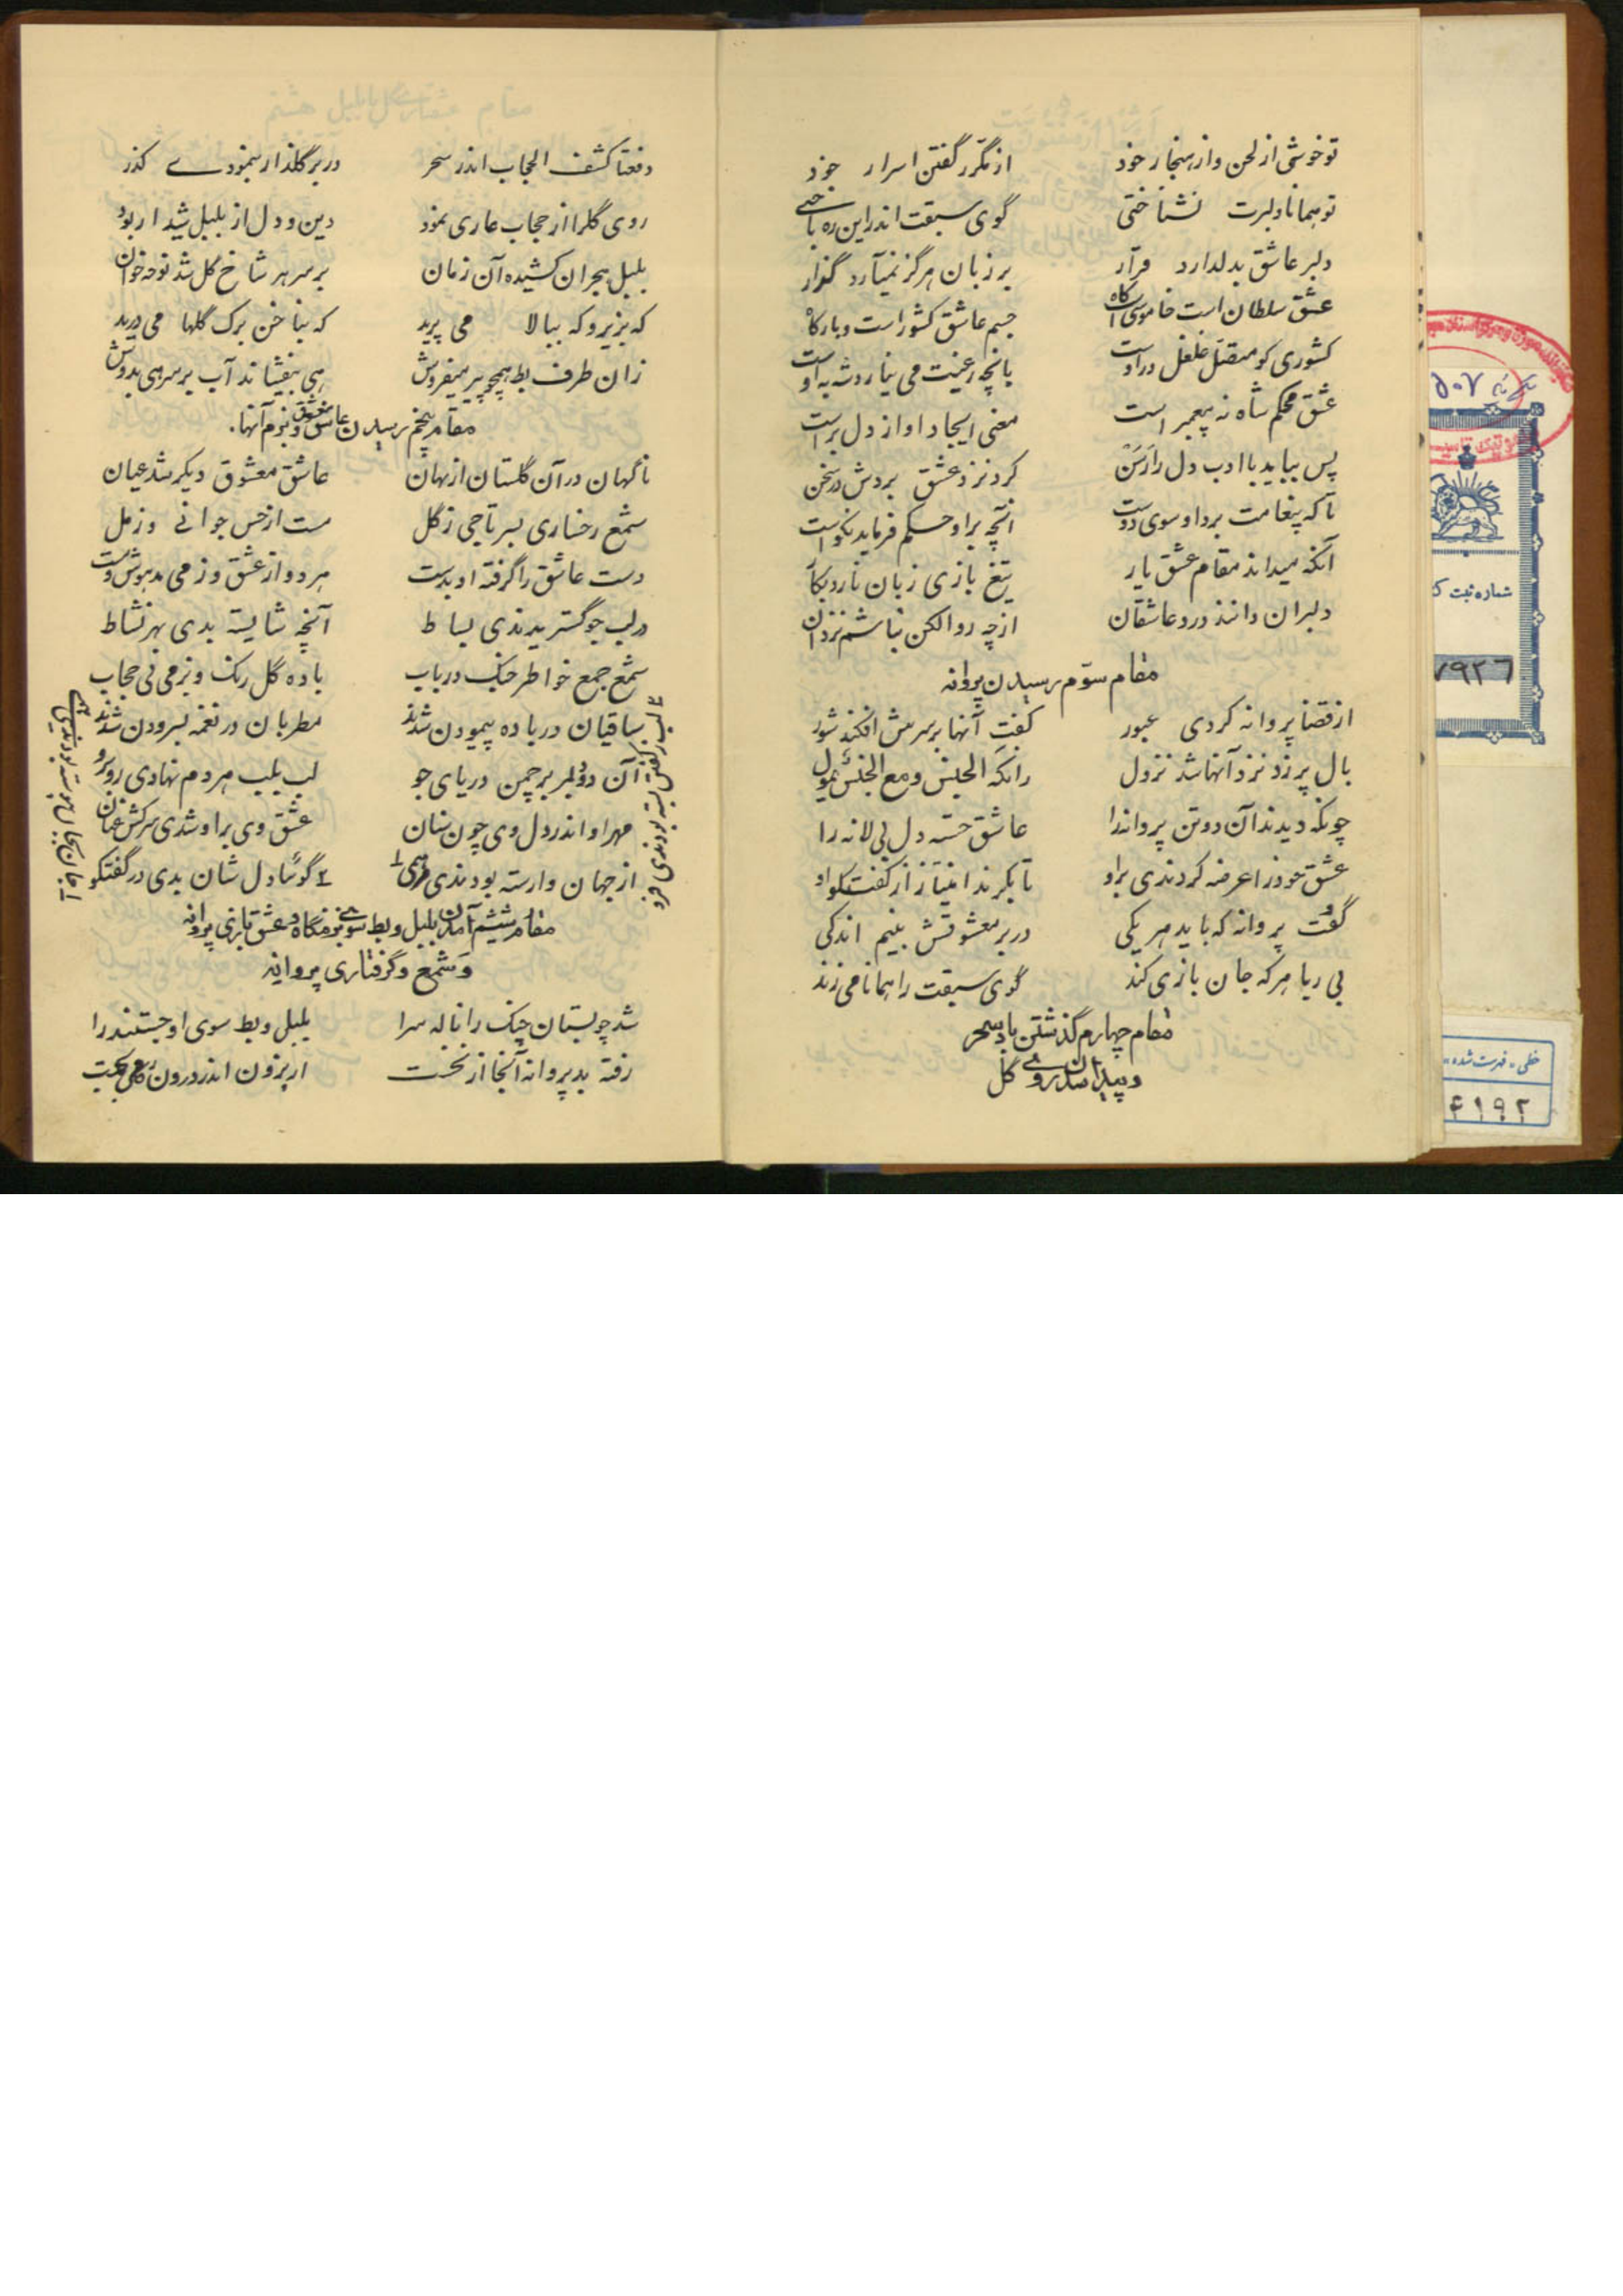 تو خوشی از لحن و از هنجار خود از مکرر گفتن اسرار خود
تو همانا دلبرت نشناختی گوی سبقت اندر این ره باختی
دلبر عاشق بدل دارد قرار بر زبان هرگز نمیآرد گذار
عشق سلطان است خاموشی کلاه جسم عاشق کشور است و بارگاه
کشوری کو متصل غلغل در اوست
عشق محکم شاه نه پیغمبر است معنی ایجاد او از دل بر است
پس بباید با ادب دل را زدن کرد نزد عشق بردش در سخن
تا که پیغامت برد او سوی دوست آنچه بر او حکم فرماید نکوست
آنکه میداند مقام عشق یار تیغ بازی زبان نارد بکار
دلبران دانند درد عاشقان از چه رو الکن نباشم نزد آن
مقام سوم رسیدن پروانه
از قضا پروانه کردی عبور گفت آنها بر سرش افکند شور
بال پر زد نزد آنها شد نزول زانکه الجنس و مع الجنس یمول
چونکه دیدند آن دو تن پروانه را عاشق خسته دل بی لانه را
عشق خود را عرضه کردندی بر او تا بگیرند امتیاز از گفتگو
گفت پروانه که باید هر یکی در بر معشوقش بینم اندکی
بی ریا هر که جان بازی کند گوی سبقت را همانا می زند
مقام چهارم گذشتن باد سحر
و پیدا شدن روی گل
دفعتا کشف الحجاب اندر سحر در بر گلذار بنمودے گذر
روی گل را از حجاب عاری نمود دین و دل از بلبل شیدا ربود
بلبل هجران کشیده آن زمان بر سر هر شاخ گل شد نوحه خوان
که بزیر و که ببالا می پرید که بناخن برک گلها می درید
زان طرف بط همچو پیر میفروش هی بیفشاند آب بر سر هی بدوش
مقام پنجم رسیدن عاشق معشوق و بزم آنها.
ناگهان در آن گلستان از نهان عاشق معشوق دیگر شد عیان
شمع رخساری بسر تاجی ز گل مست از حسن جوانی و ز مل
دست عاشق را گرفته او بدست هر دو از عشق و ز می مدهوش و مست
در لب جو گستریدندی بساط آنچه شایسته بدی بهر نشاط
شمع جمع خواطر چنک و رباب باده گل رنک و بزمی بی حجاب
ساقیان در باده پیمودن شدند مطربان در نغمه بسرودن شدند
آن دو دلبر بر چمن دریای جو لب بلب هر دم نهادی روبرو
مهر او اندر دل وی چون سنان عشق وی بر او شدی سرکش عنان
از جهان وارسته بودندی گوئیا دل شان بدی در گفتگو
مقام ششم آمدن بلبل و بط سوی بزمگاه و عشق بازی پروانه
و شمع و گرفتاری پروانه
شد چو بستان چنک را ناله سرا بلبل و بط سوی او جستند را
رفته بد پروانه آنجا از نخست
شماره ثبت ک
۷۹۲۶
خطی - فهرست شده
۴۱۹۲